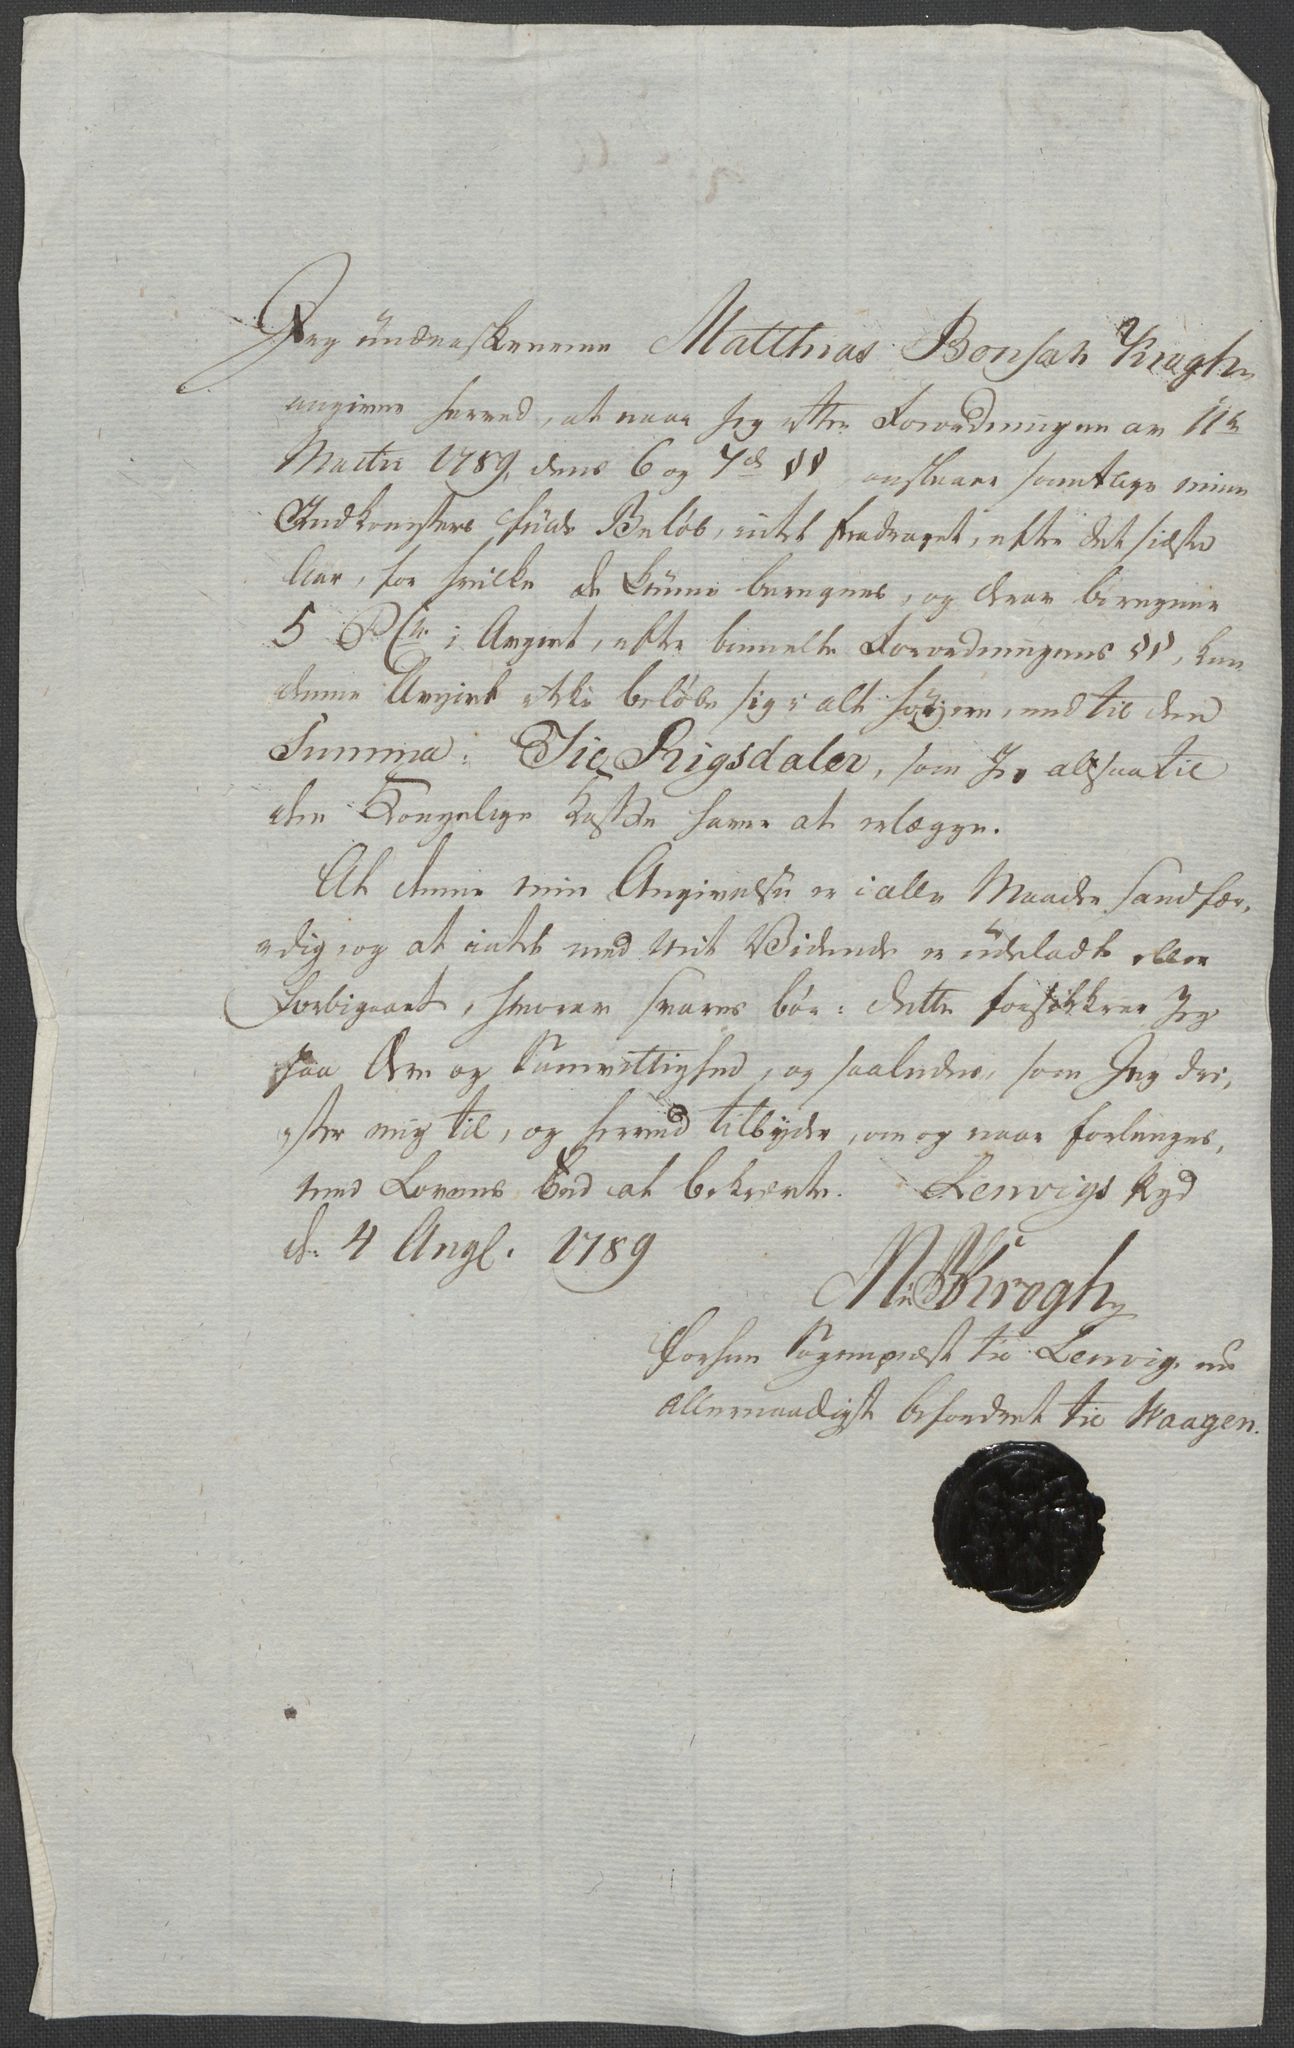 Jeg underskrevne Matthias Bonsak Krogh
angiver herved, at naar jeg efter Forordningen av 11te
Martii 1789, dens 6 og 7de §§, anslaaer samtlige mine
Indkomsters fulde Beløb, intet fradraget, efter det sidste
Aar, for hvilke de kunne beregnes, og derav beregner
5 P Ct. i Avgivt, efter bemelte Forordningens §§, kan
denne Avgivt ikke beløbe sig i alt høyere, end til den
Summa: Tie Rigsdaler, som Jeg altsaa til
den Kongelige Kasse haver at erlægge.
At denne min Angivelse er i alle Maader sandfær,
dig, og at intet med mit Vidende er udeladt eller
forbigaaet, hvorav svares bør: dette forsikkrer Jeg
paa Ære og Samvittighed, og saaledes, som Jeg dri,
ster mig til, og herved tilbyder, om og naar forlanges,
med Lovens Eed at bekræfte. Lenvigs
d: 4 Aug. 1789
MBKrogh
forhen Sogneprest til Lenvig, nu
allernaadigst befordret til Waagen.